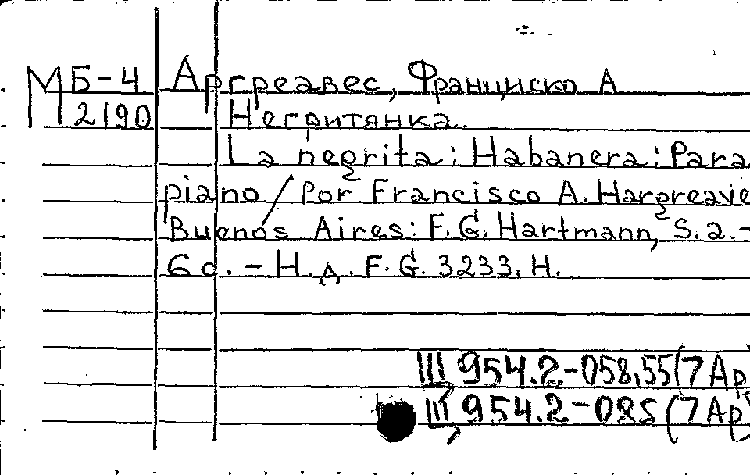 МБ-4 Аргреавес, Франциско А
2190 Негритянка.
La negrita: Habanera: Para
piano / Por Francisco A. Hargreave
Buenos Aires: F. G. Hartmann, S. a.-
6 с. - Н. д. F. G. 3233. H.
III 954.2-058,55(7Ар
III 954.2-085(7Ар